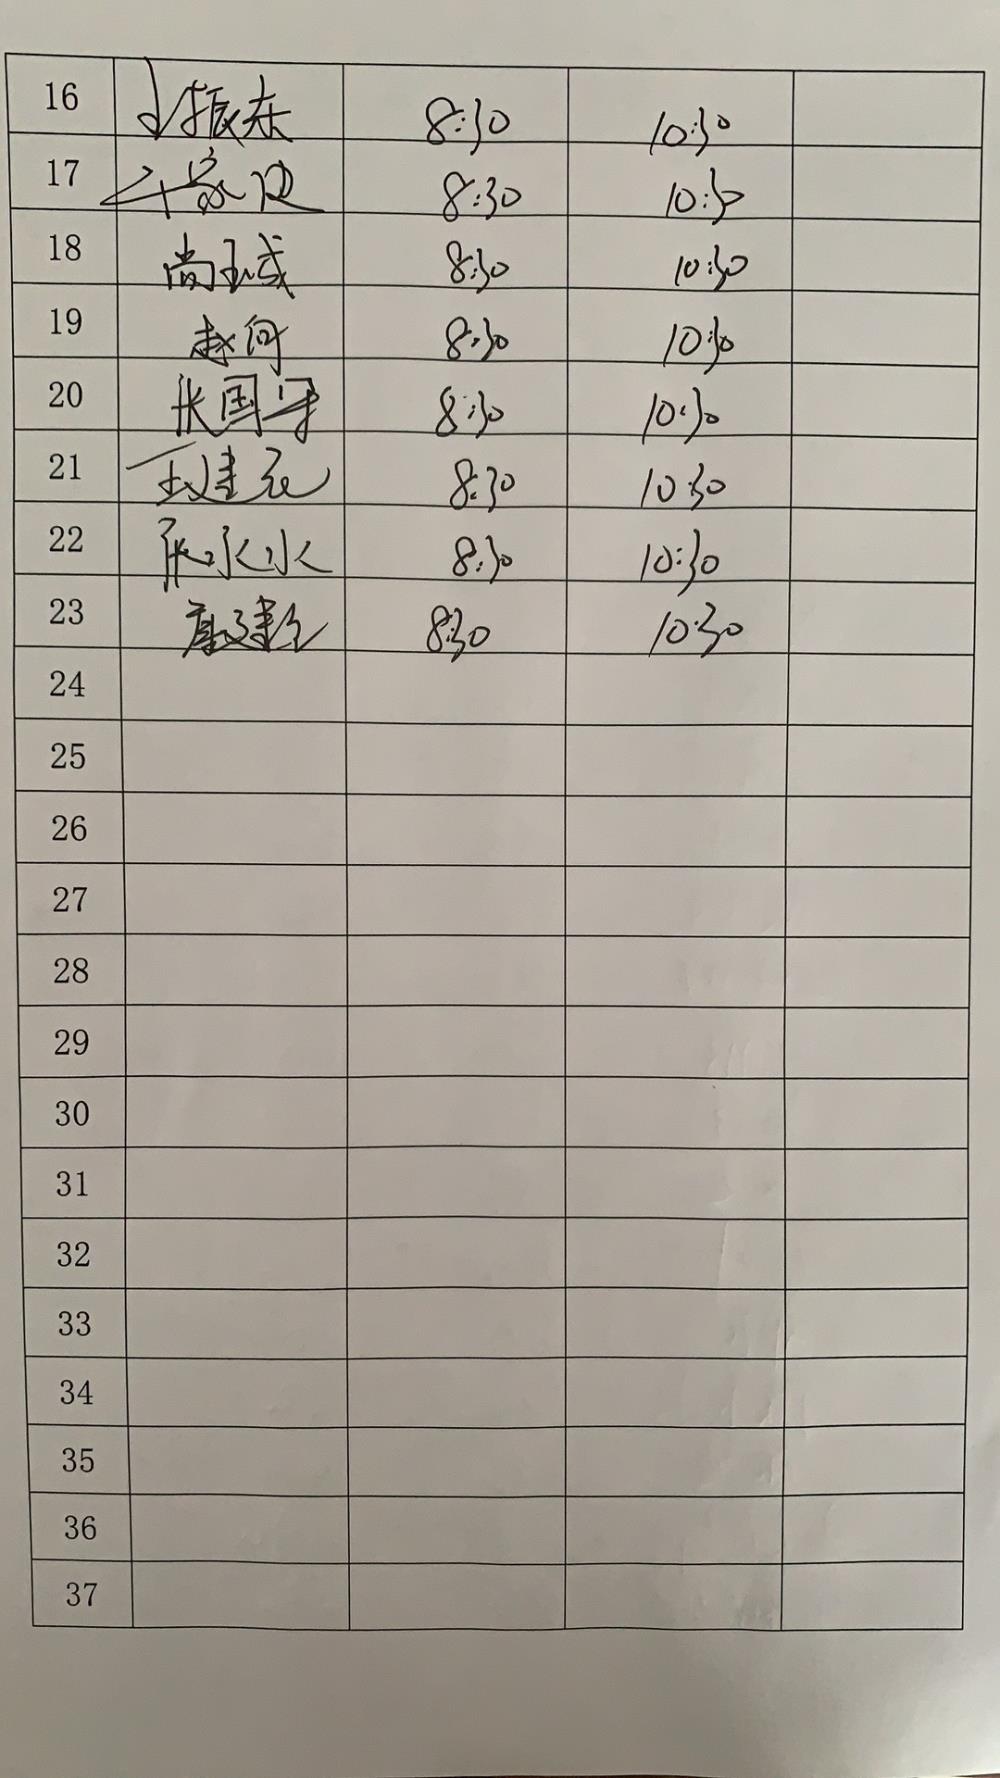 16 振东 8:30 10:30
17 8:30 10:30
18 尚玉成 8:30 10:30
19 赵何 8:30 10:30
20 张国军 8:30 10:30
21 王建 8:30 10:30
22 张永水 8:30 10:30
23 8:30 10:30
24
25
26
27
28
29
30
31
32
33
34
35
36
37